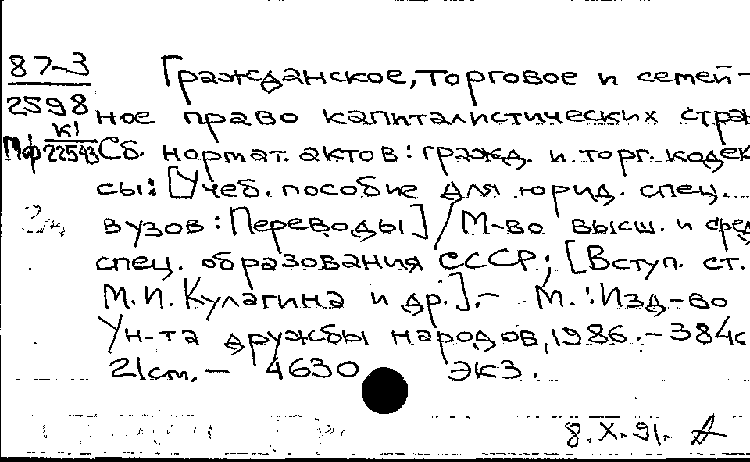 87-3
2598
К1
Мф 22543
Гражданское, торговое и семей-
ное право капиталистических стра
Сб. нормат. актов: гражд. и торг. кодек
сы: [Учеб. пособие для юрид. спец.
вузов: Переводы] / М-во высш. и сред
спец. образования СССР; [Вступ. ст.
М.И. Кулагина и др.].- М.: Изд-во
Ун-та дружбы народов, 1986.- 384с
21см.- 4630 экз.
8.X.91.